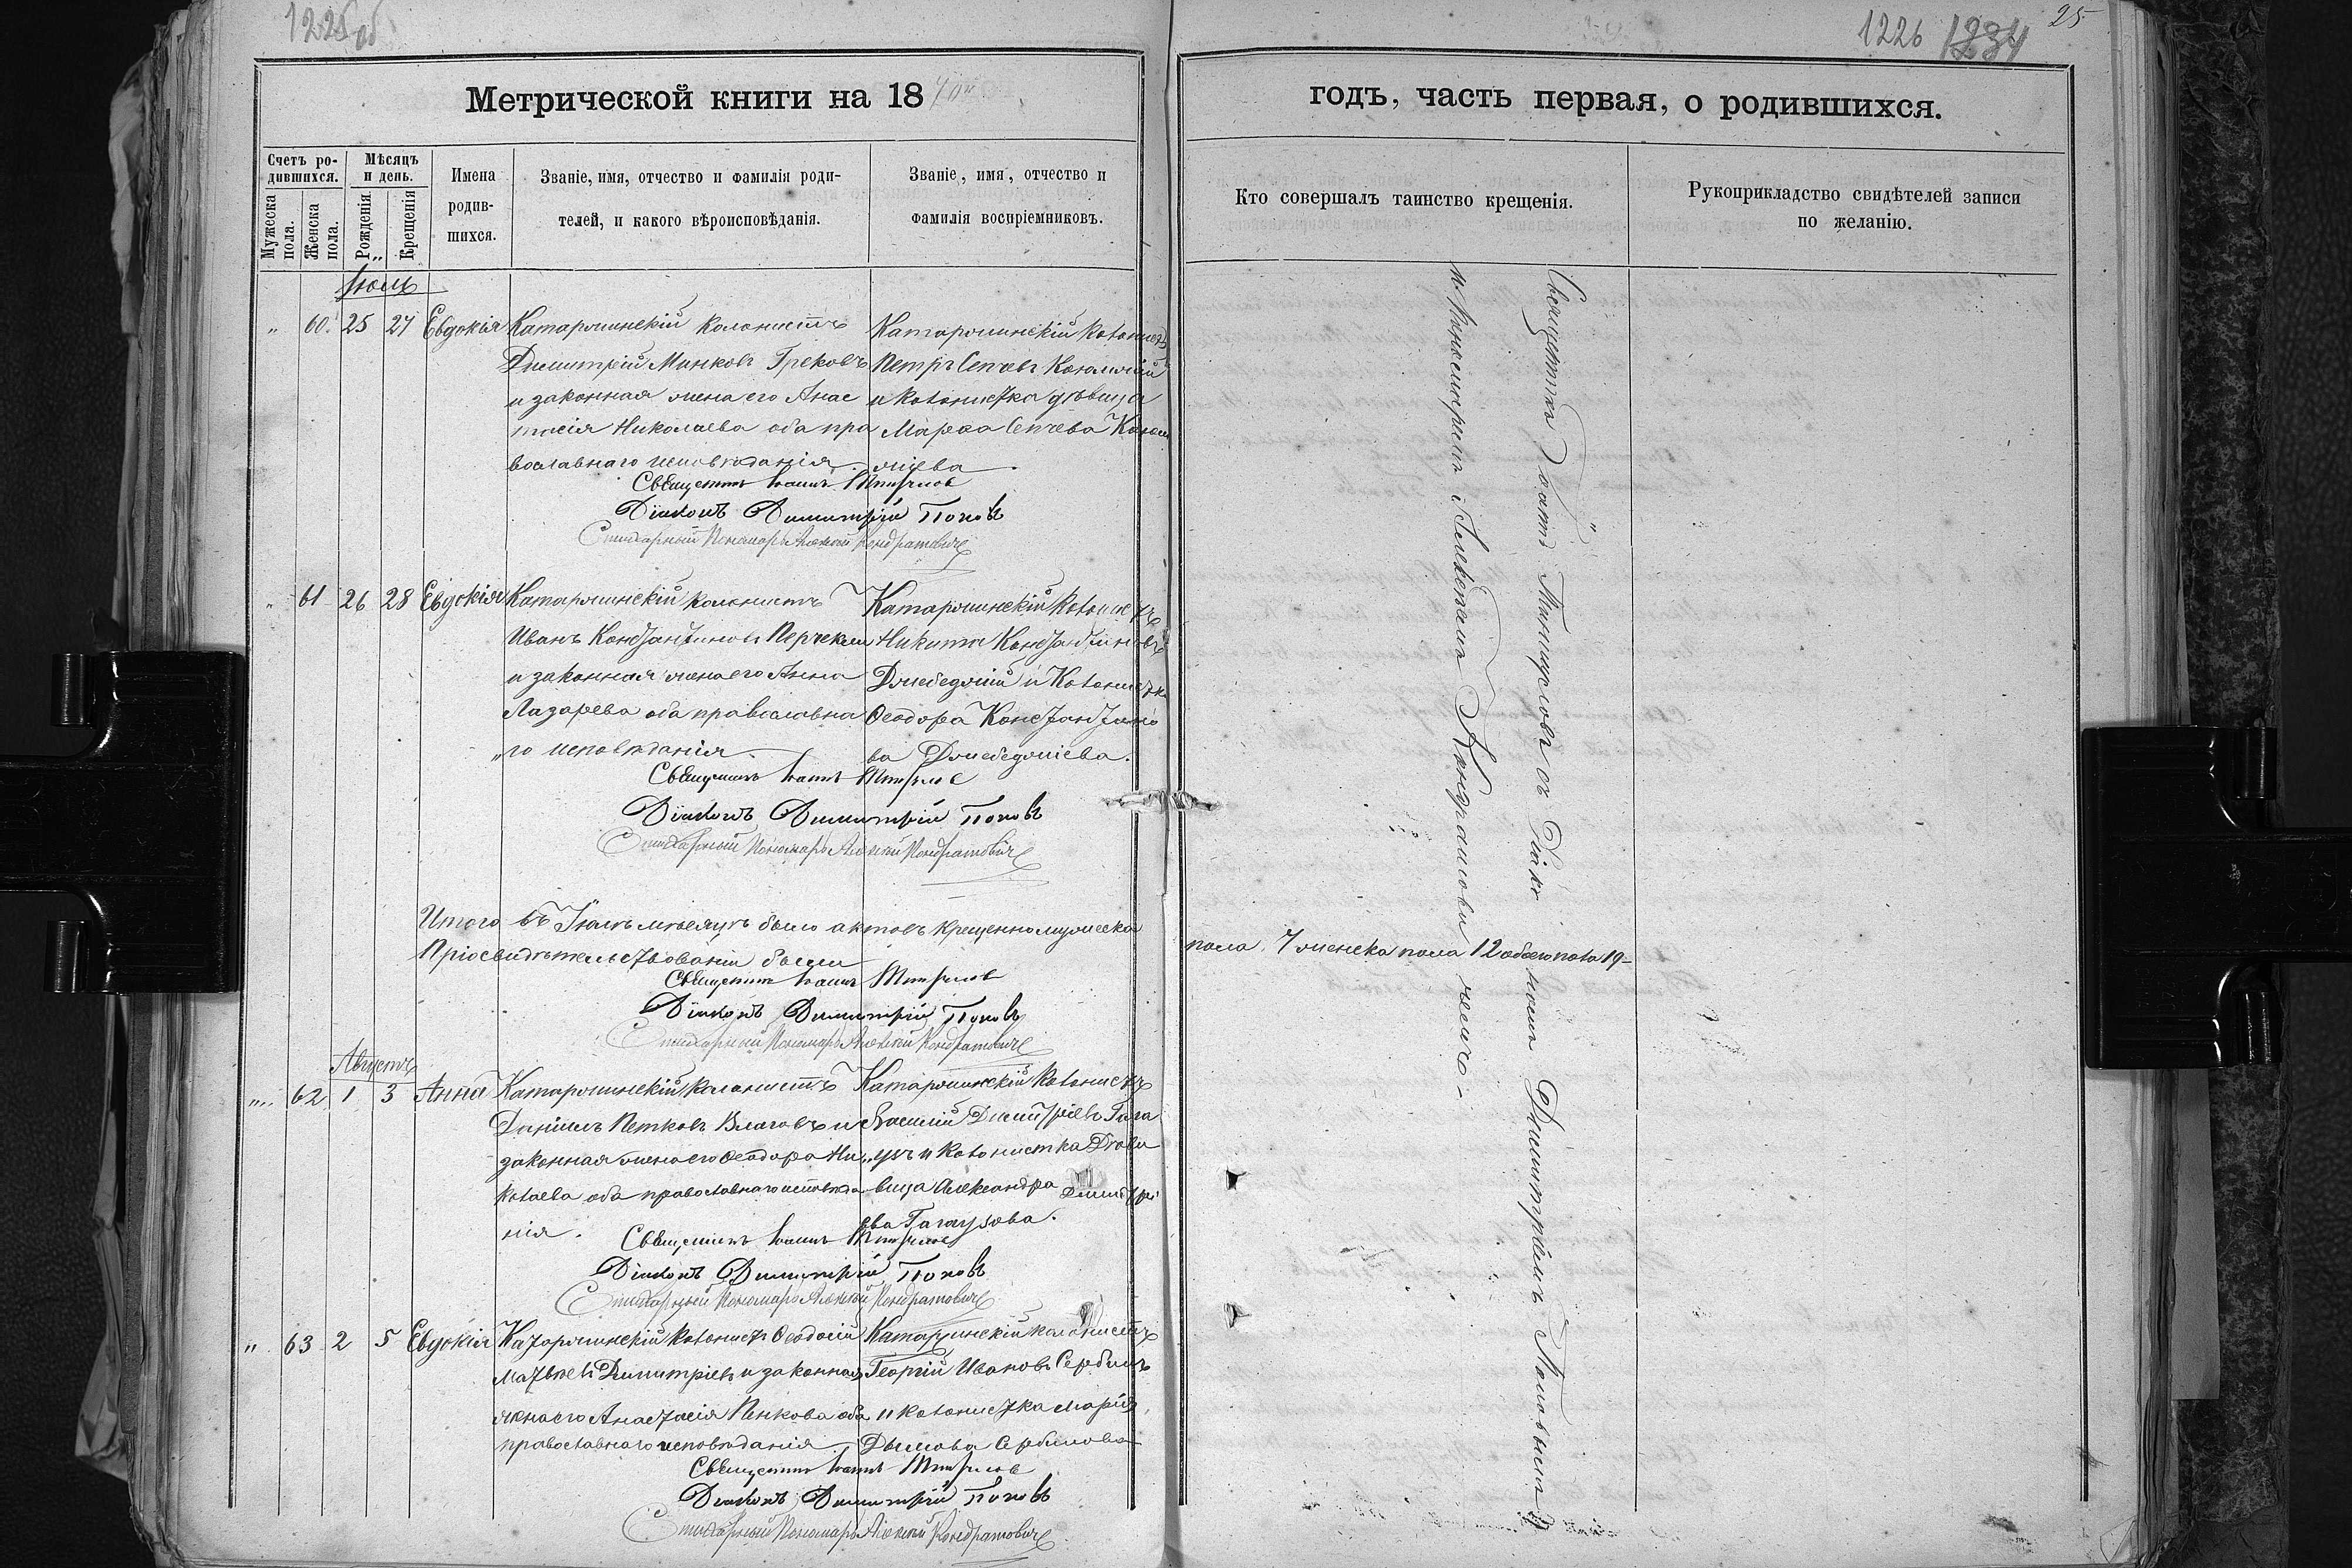 1225об
Метрической книги на 18
Счетъ родившихся.
Мѣсяцъ и день.
Мужеска пола.
Женска пола.
Рожденія
Крещенія
Имена родившихся.
Званіе, имя, отчество и фамилія родителей, и какого вѣроисповѣданія.
Званіе, имя, отчество и фамилія воспріемниковъ.
Іюль
" 60. 25 27 Евдокія
Катаржинскій колонистъ
Димитрій Минковъ Грековъ
и законная жена его Анас
тасія Николаева оба пра
вославнаго исповѣданія.
Катаржинскій колонистъ
Петръ
и колонистка дѣвица
Марѳа
Священникъ Іоаннъ
Діаконъ Димитрій Поповъ
Стихарный Пономарь Алексій Кондратовичъ
" 61 26 28 Евдокія
Катаржинскій колонистъ
Иванъ Константиновъ
и законная жена его Анна
Лазарева оба православна
"го исповѣданія
Катаржинскій колонистъ
Никита Константиновъ
и колонистка
Ѳеодора Константино
ва
Священникъ Іоаннъ
Діаконъ Димитрій Поповъ
Стихарный Пономарь Алексій Кондратовичъ
Итого въ Іюлѣ мѣсяцѣ было актовъ крещенно мужеска
При освидѣтельствованіи были
Священникъ Іоаннъ
Діаконъ Димитрій Поповъ
Стихарный Пономарь Алексій Кондратовичъ
Августъ
" 62 1 3 Анна
Катаржинскій колонистъ
Даніилъ Петковъ Влаговъ и
законная жена его Ѳеодора Ни
колаева оба православнаго исповѣда
нія.
Катаржинскій колонистъ
Василій Димитріевъ Гага
"узъ и колонистка Дѣ
вица Александра Димитрі
ева Гагаузова.
Священникъ Іоаннъ
Діаконъ Димитрій Поповъ
Стихарный Пономарь Алексій Кондратовичъ
" 63 2 5 Евдокія
Катаржинскій колонистъ Ѳеодосій
Матвѣевъ Димитріевъ и законная
жена его Анастасія Пенкова оба
православнаго исповѣданія
Катаржинскій колонистъ
Георгій Ивановъ Сербинъ
и колонистка Марія
Дымова Сербинова
Священникъ Іоаннъ
Діаконъ Димитрій Поповъ
Стихарный Пономарь Алексій Кондратовичъ
1226 1234 25
годъ, часть первая, о родившихся.
Кто совершалъ таинство крещенія.
Рукоприкладство свидѣтелей записи по желанію.
Священникъ Іоаннъ съ Діакономъ Димитріемъ Поповымъ
и Пономаремъ Алексіемъ Кондратовичемъ
пола 7 женска пола 12 обоего пола 19